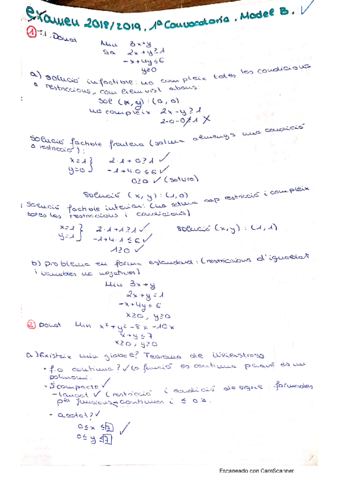 Examen 2018/2019. 1ª Convocatoria. Model B.
1 1. Donat Min 3x+y
sa 2x+y≥1
-x+4y≤6
y≥0
a) solució infactible: no compleix totes les condicions
o restriccions, com hem vist abans
Sol (x,y): (0,0)
no compleix 2x-y≥1
2·0-0≥1 X
Solució factible frontera (satura almenys una condició
o restricció):
x=1 } 2·1+0≥1 ✓
y=0 } -1+4·0≤6 ✓
0≥0 ✓ (satura)
Solució (x,y): (1,0)
Solució factible interior: (no satura cap restricció i compleix
totes les restriccions i condicions)
x=1 } 2·1+1≥1 ✓ solució (x,y): (1,1)
y=1 } -1+4·1≤6 ✓
1≥0 ✓
b) problema en forma estandard: (restriccions d'igualtat
i variables no negatives)
Min 3x+y
2x+y=1
-x+4y=6
x≥0, y≥0
2 Donat Min x²+y²-8x-10x
x+y≤7
x≥0, y≥0
a) Existeix min global? Teorema de Weierstrass
- f.o continua? ✓ la funció es continua perquè es un
polinomi.
- S compacte ✓
- tancat ✓ (restricció i condició de signe formades
per funcions continues i ≤ o ≥.
- acotat? ✓
0≤x≤7
0≤y≤7
Escaneado con CamScanner